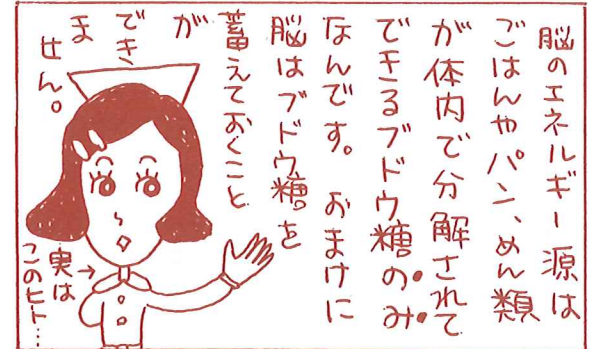 脳のエネルギー源は
ごはんやパン、めん類
が体内で分解されて
できるブドウ糖のみ
なんです。おまけに
脳はブドウ糖を
蓄えておくこと
が
でき
ま
せん。
実は
このヒト…